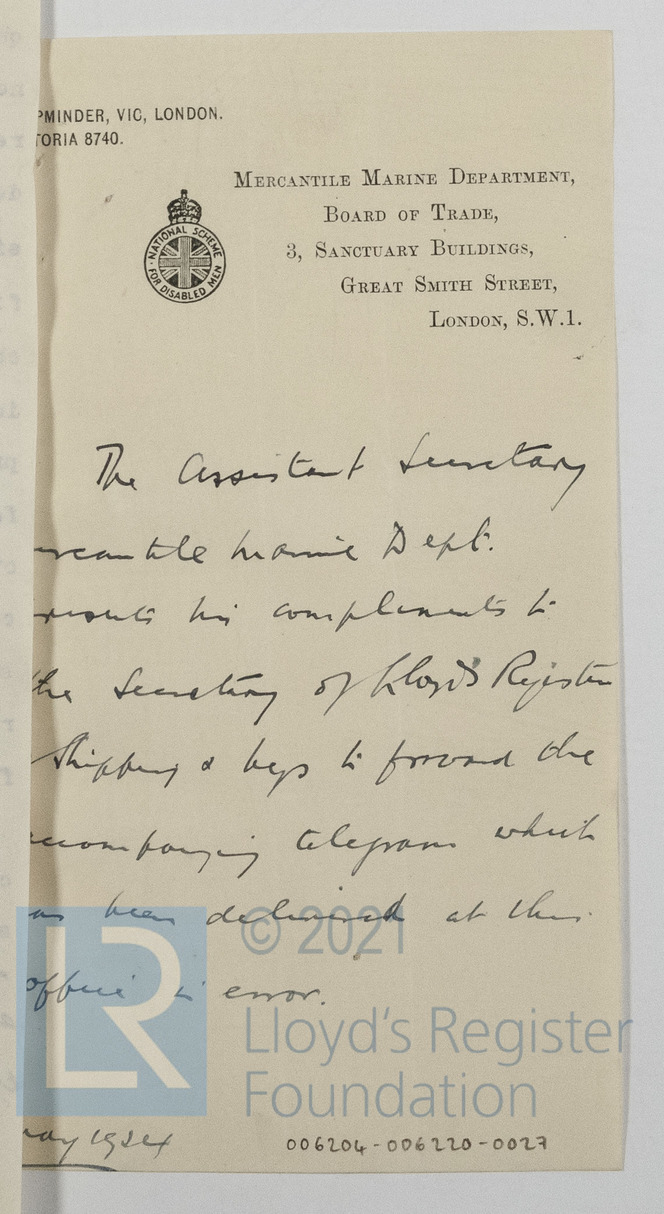 PMINDER, VIC, LONDON.
TORIA 8740.
MERCANTILE MARINE DEPARTMENT,
BOARD OF TRADE,
3, SANCTUARY BUILDINGS,
GREAT SMITH STREET,
LONDON, S.W.1.
NATIONAL SCHEME
FOR DISABLED MEN
The Assistant Secretary
ercantile Marine Dept.
resents his compliments to
the Secretary of Lloyd's Register
Shipping & begs to forward the
ccompanying telegram which
as been delivered at this
office in error.
May 1924
LR
© 2021
Lloyd's Register
Foundation
006204-006220-0027